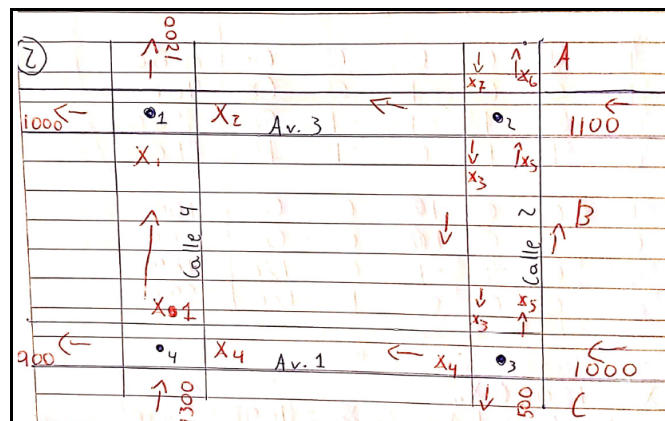 2
1200
x7 x6 A
1000 1 X2 Av. 3 2 1100
X1 x3 x5
Calle 4 Calle 2 B
X1 x3 x5
900 4 X4 Av. 1 X4 3 1000
500 C